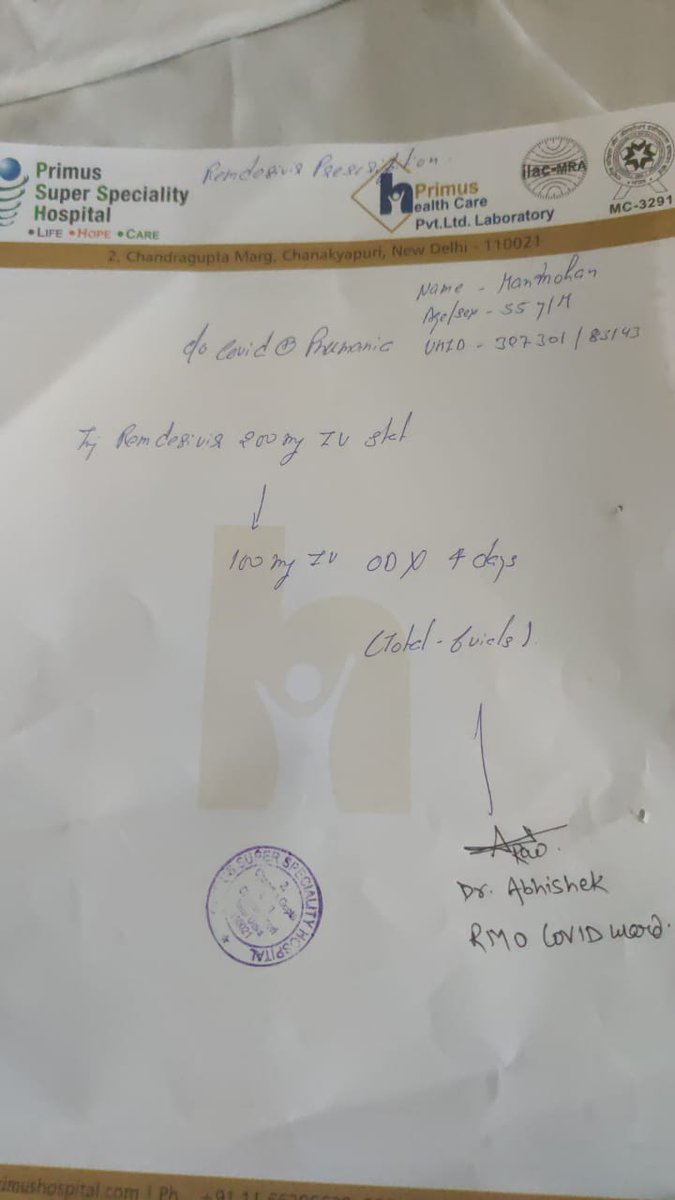 Remdesivir Prescription
Primus
Super Speciality
Hospital
• LIFE • HOPE • CARE
Primus
Health Care
Pvt.Ltd. Laboratory
ilac-MRA
MC-3291
2, Chandragupta Marg, Chanakyapuri, New Delhi - 110021
Name - Manmohan
Age/sex - 55 y/M
UHID - 307301/83143
Covid ⊕ Pneumania
Inj Remdesivir 200 mg IV stat
↓
100 mg IV OD X 4 days
(Total - 6 vials).
Dr. Abhishek
RMO COVID ward.
SUPER SPECIALITY HOSPITAL
110021
imushospital.com | Ph